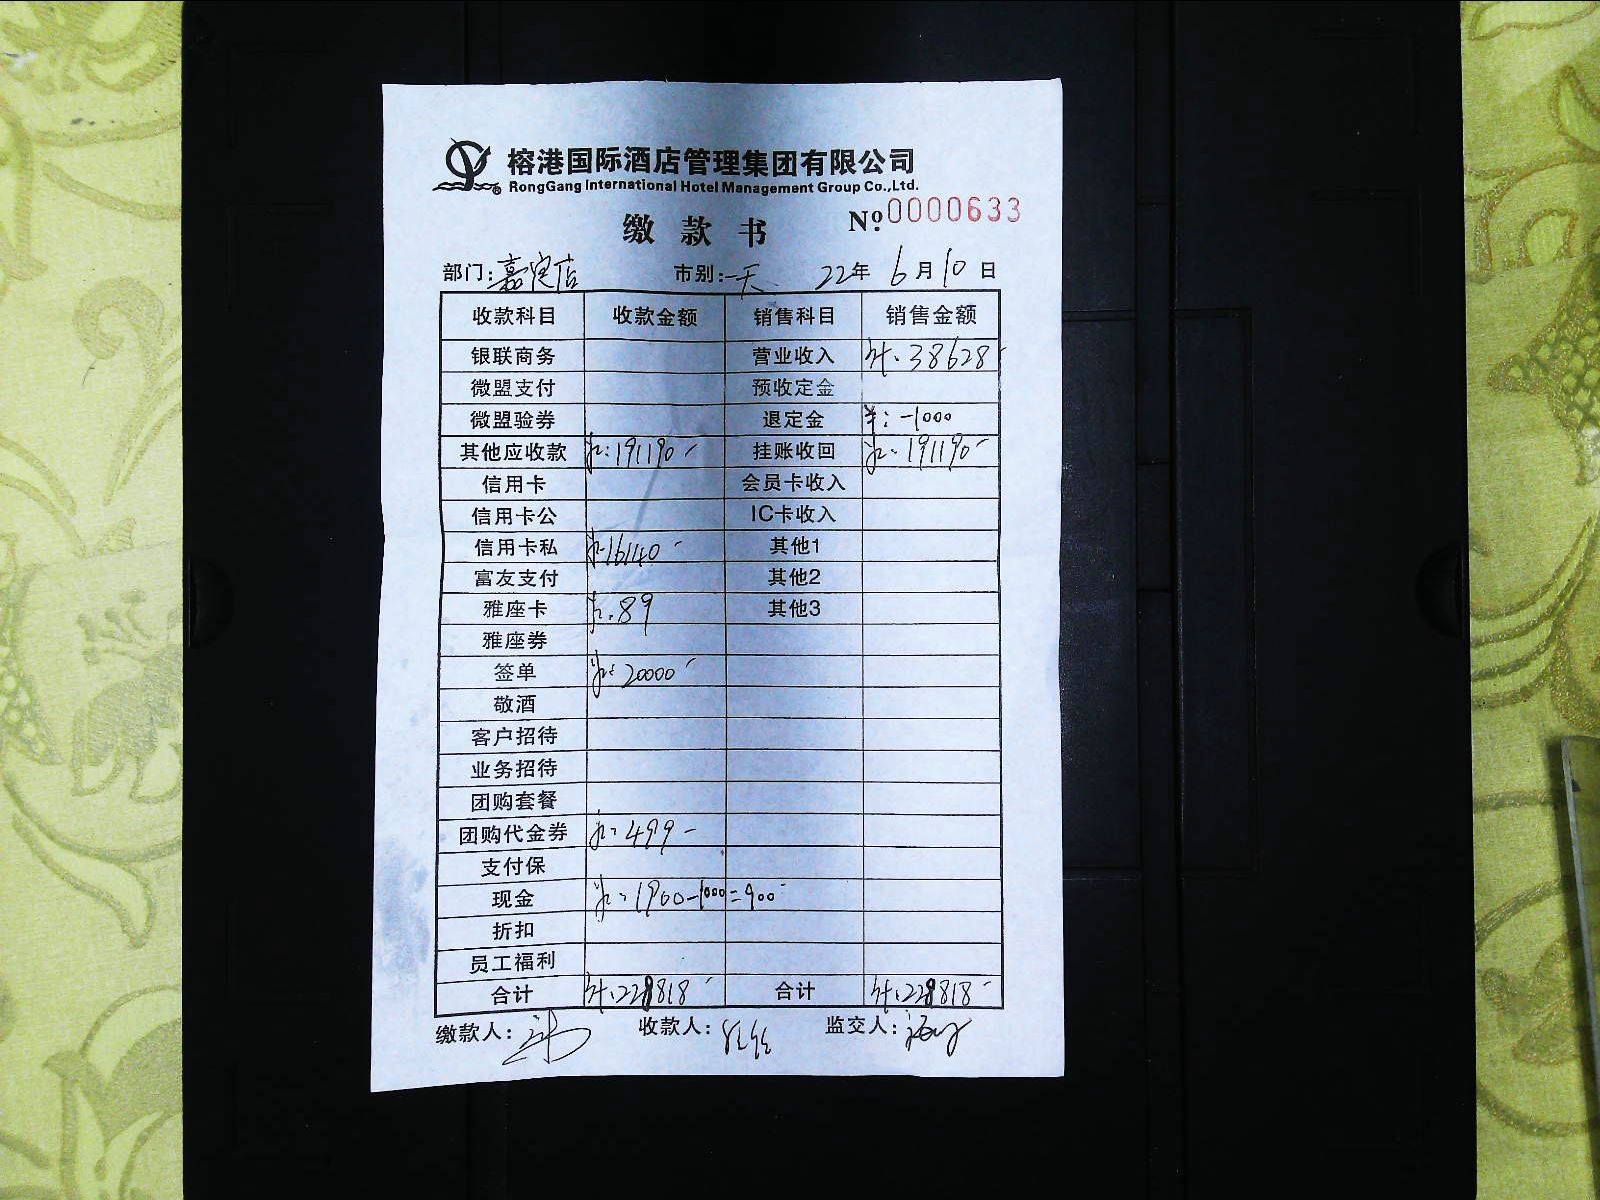 榕港国际酒店管理集团有限公司
RongGang International Hotel Management Group Co.,Ltd.
缴款书 №:0000633
部门:嘉定店 市别:一天 22年6月10日
收款科目 收款金额 销售科目 销售金额
银联商务 营业收入 38628
微盟支付 预收定金
微盟验券 退定金 ¥:-1000
其他应收款 191190 挂账收回 191190
信用卡 会员卡收入
信用卡公 IC卡收入
信用卡私 16140 其他1
富友支付 其他2
雅座卡 89 其他3
雅座券
签单 20000
敬酒
客户招待
业务招待
团购套餐
团购代金券 499
支付保
现金 1900-1000=900
折扣
员工福利
合计 228818 合计 228818
缴款人: 收款人: 监交人: